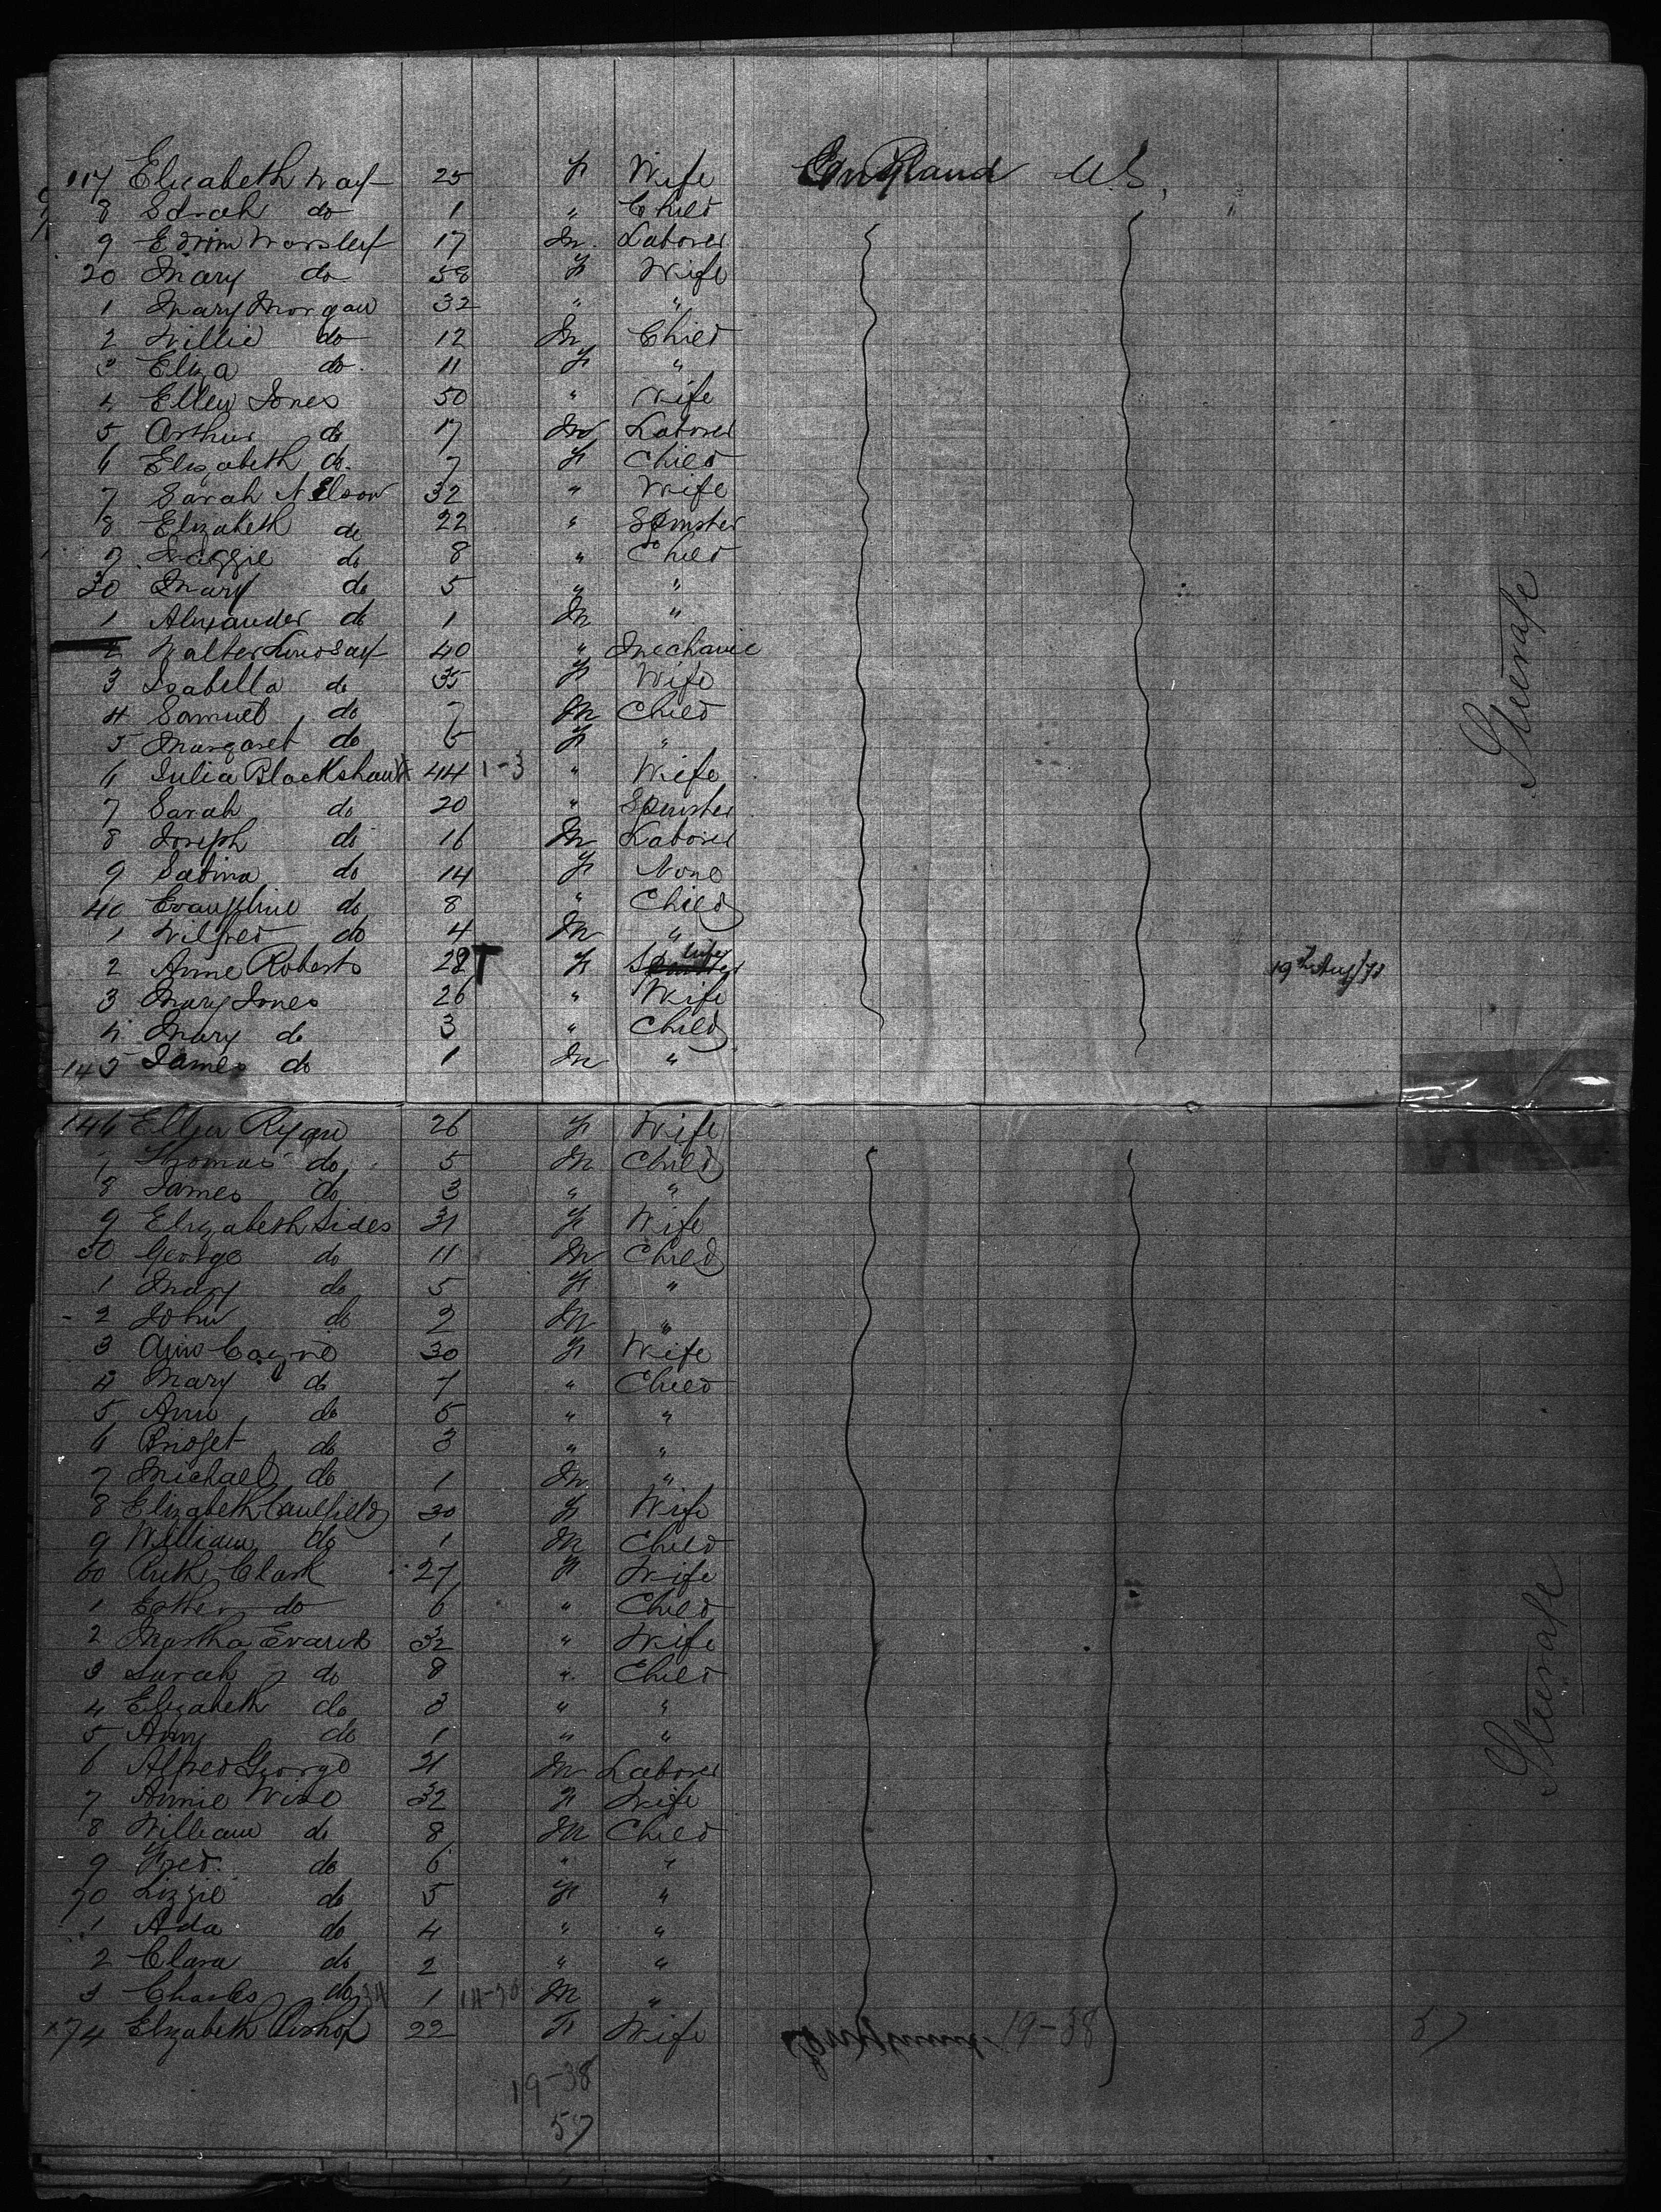 117 Elizabeth Way 25 F Wife England U.S.
8 Sarah do 1 " Child
9 Edwin Worsley 17 M. Laborer
20 Mary do 58 F Wife
1 Mary Morgan 32 " "
2 Willie do 12 M Child
3 Eliza do 11 F "
4 Ellen Jones 50 " Wife
5 Arthur do 17 M Laborer
6 Elizabeth do. 7 F Child
7 Sarah Nelson 32 " Wife
8 Elizabeth do 22 " Spinster
9 Maggie do 8 " Child
30 Mary do 5 " "
1 Alexander do 1 M "
2 Walter Lindsay 40 " Mechanic
3 Isabella do 35 F Wife
4 Samuel do 7 M Child
5 Margaret do 5 F "
6 Julia Blackshaw 44 1-3 " Wife
7 Sarah do 20 " Spinster
8 Joseph do 16 M Laborer
9 Sabina do 14 F None
40 Evangeline do 8 " Child
1 Wilfred do 4 M "
2 Anne Roberts 28 F Spinster Wife 19th Aug/71
3 Mary Jones 26 " Wife
4 Mary do 3 " Child
145 James do 1 M "
Steerage
146 Ellen Ryan 26 F Wife
7 Thomas do 5 M Child
8 James do 3 " "
9 Elizabeth Sides 31 F Wife
50 George do 11 M Child
1 Mary do 5 F "
2 John do 2 M "
3 Ann Coyne 30 F Wife
4 Mary do 7 " Child
5 Ann do 5 " "
6 Bridget do 3 " "
7 Michael do 1 M "
8 Elizabeth Caulfield 30 F Wife
9 William do 1 M Child
60 Ruth Clark 27 F Wife
1 Esther do 6 " Child
2 Martha Evans 32 " Wife
3 Sarah do 8 " Child
4 Elizabeth do 3 " "
5 Amy do 1 " "
6 Alfred George 21 M Laborer
7 Annie Wise 32 F Wife
8 William do 8 M Child
9 Fred. do 6 " "
70 Lizzie do 5 F "
1 Ada do 4 " "
2 Clara do 2 " "
3 Charles do 1 M "
74 Elizabeth Bishop 22 F Wife 19-38 57
Steerage
19-38
57